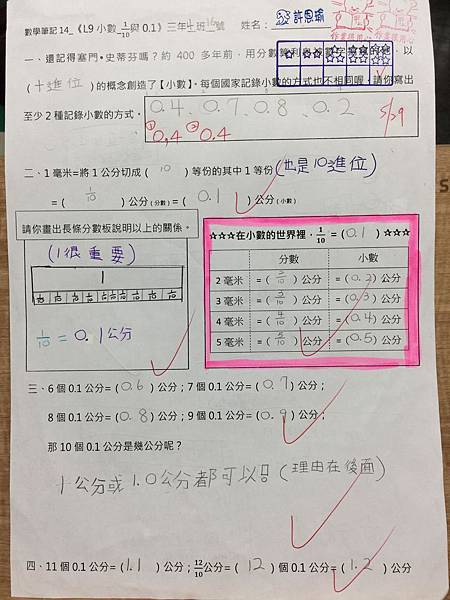 數學筆記 14_《L9 小數 1/10 與 0.1》三年 班 16 號 姓名：許恩瑜
一、還記得塞門•史蒂芬嗎？約 400 多年前，用分數 以
(十進位)的概念創造了【小數】，每個國家記錄小數的方式也不相同喔，請你寫出
至少 2 種記錄小數的方式。
0.4、0.7、0.8、0.2
① 0,4 ② 0.4
5/29
二、1 毫米=將 1 公分切成 ( 10 ) 等份的其中 1 等份 (也是10進位)
= ( 1/10 ) 公分(分數) = ( 0.1 ) 公分(小數)
請你畫出長條分數板說明以上的關係。
(1很重要)
1
1/10 1/10 1/10 1/10 1/10 1/10 1/10 1/10 1/10 1/10
1/10 = 0.1公分
☆☆☆在小數的世界裡，1/10 = (0.1) ☆☆☆
分數 小數
2 毫米 = ( 2/10 ) 公分 = (0.2) 公分
3 毫米 = ( 3/10 ) 公分 = (0.3) 公分
4 毫米 = ( 4/10 ) 公分 = (0.4) 公分
5 毫米 = ( 5/10 ) 公分 = (0.5) 公分
三、6 個 0.1 公分= (0.6) 公分；7 個 0.1 公分= (0.7) 公分；
8 個 0.1 公分= (0.8) 公分；9 個 0.1 公分= (0.9) 公分；
那 10 個 0.1 公分是幾公分呢？
1公分或1.0公分都可以 (理由在後面)
四、11 個 0.1 公分= (1.1) 公分；12/10 公分= ( 12 ) 個 0.1 公分= ( 1.2 ) 公分